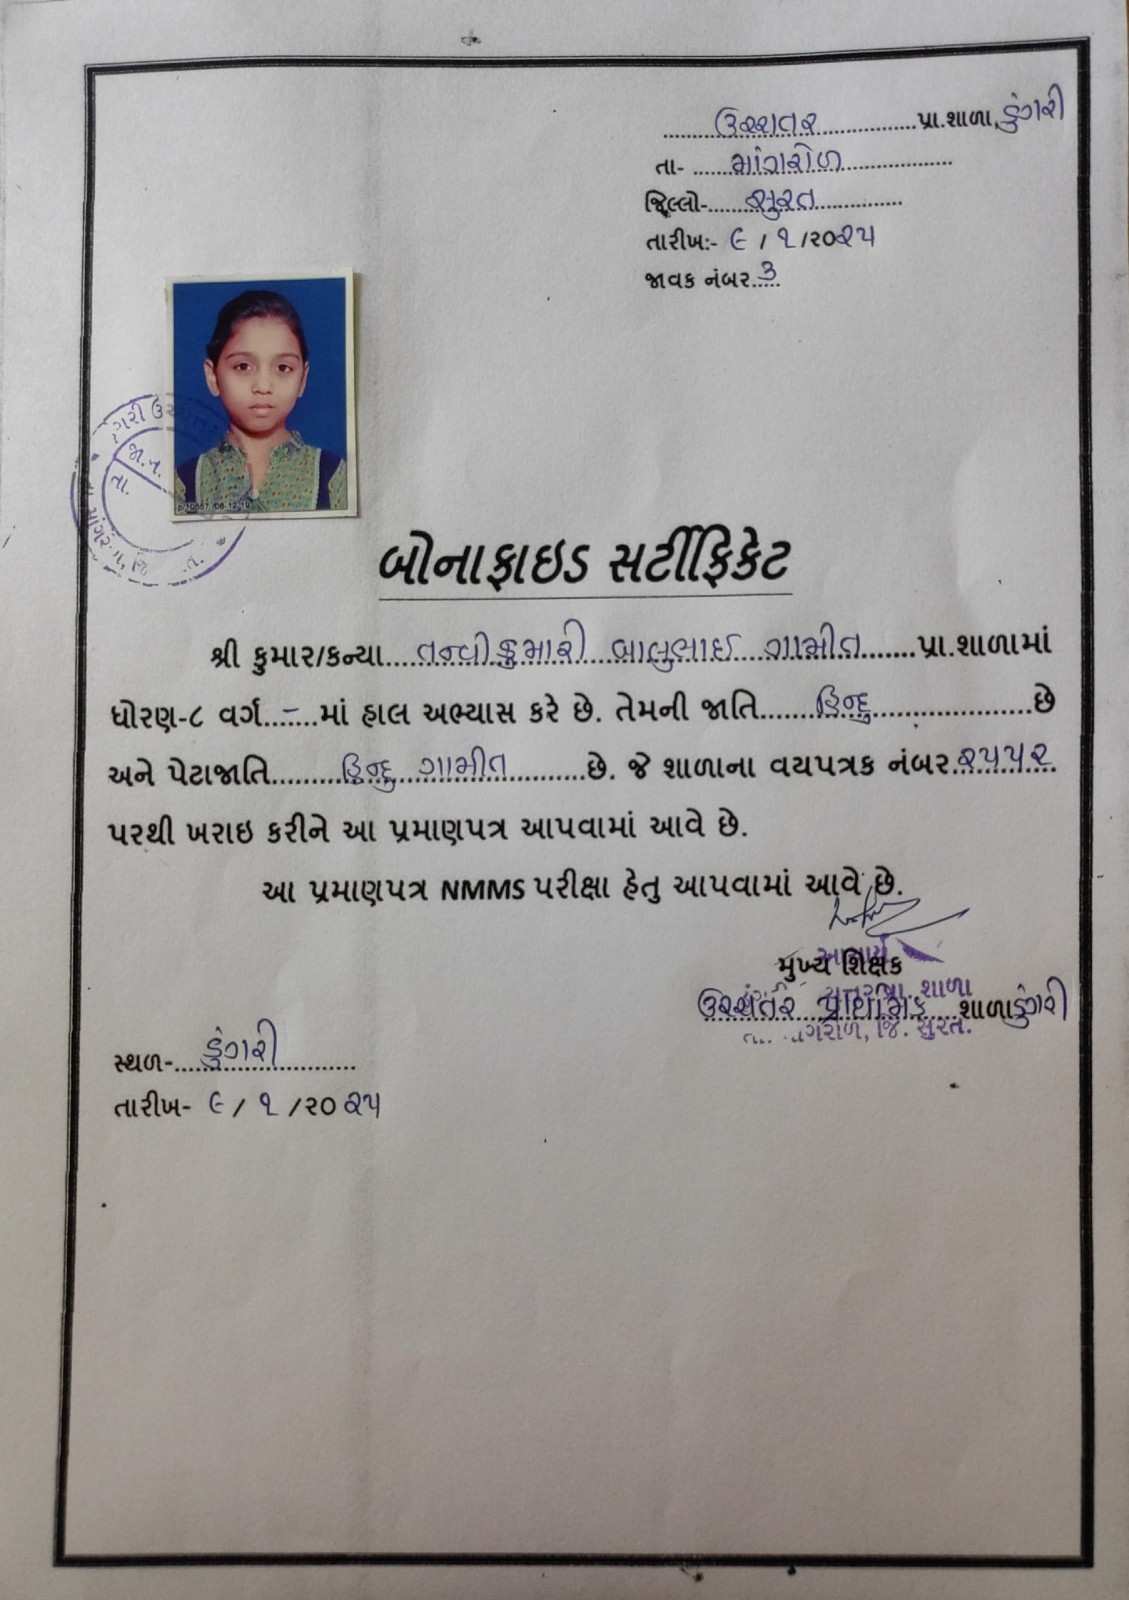 ઉચ્ચતર પ્રા.શાળા, ડુંગરી
તા- માંગરોળ
જિલ્લો- સુરત
તારીખ:- ૯ / ૧ /૨૦૨૫
જાવક નંબર 3
ગરી
જા.ન.
તા.
બોનાફાઇડ સર્ટીફિકેટ
શ્રી કુમાર/કન્યા તન્વીકુમારી બાલુભાઈ ગામીત પ્રા.શાળામાં
ધોરણ-૮ વર્ગ – માં હાલ અભ્યાસ કરે છે. તેમની જાતિ હિન્દુ છે
અને પેટાજાતિ હિન્દુ ગામીત છે. જે શાળાના વયપત્રક નંબર ૨૫૫૨
પરથી ખરાઇ કરીને આ પ્રમાણપત્ર આપવામાં આવે છે.
આ પ્રમાણપત્ર NMMS પરીક્ષા હેતુ આપવામાં આવે છે.
આચાર્ય
મુખ્ય શિક્ષક
પ્રા. શાળા
ઉચ્ચતર પ્રાથમિક શાળા ડુંગરી
જિ. સુરત.
સ્થળ- ડુંગરી
તારીખ- ૯ / ૧ /૨૦૨૫